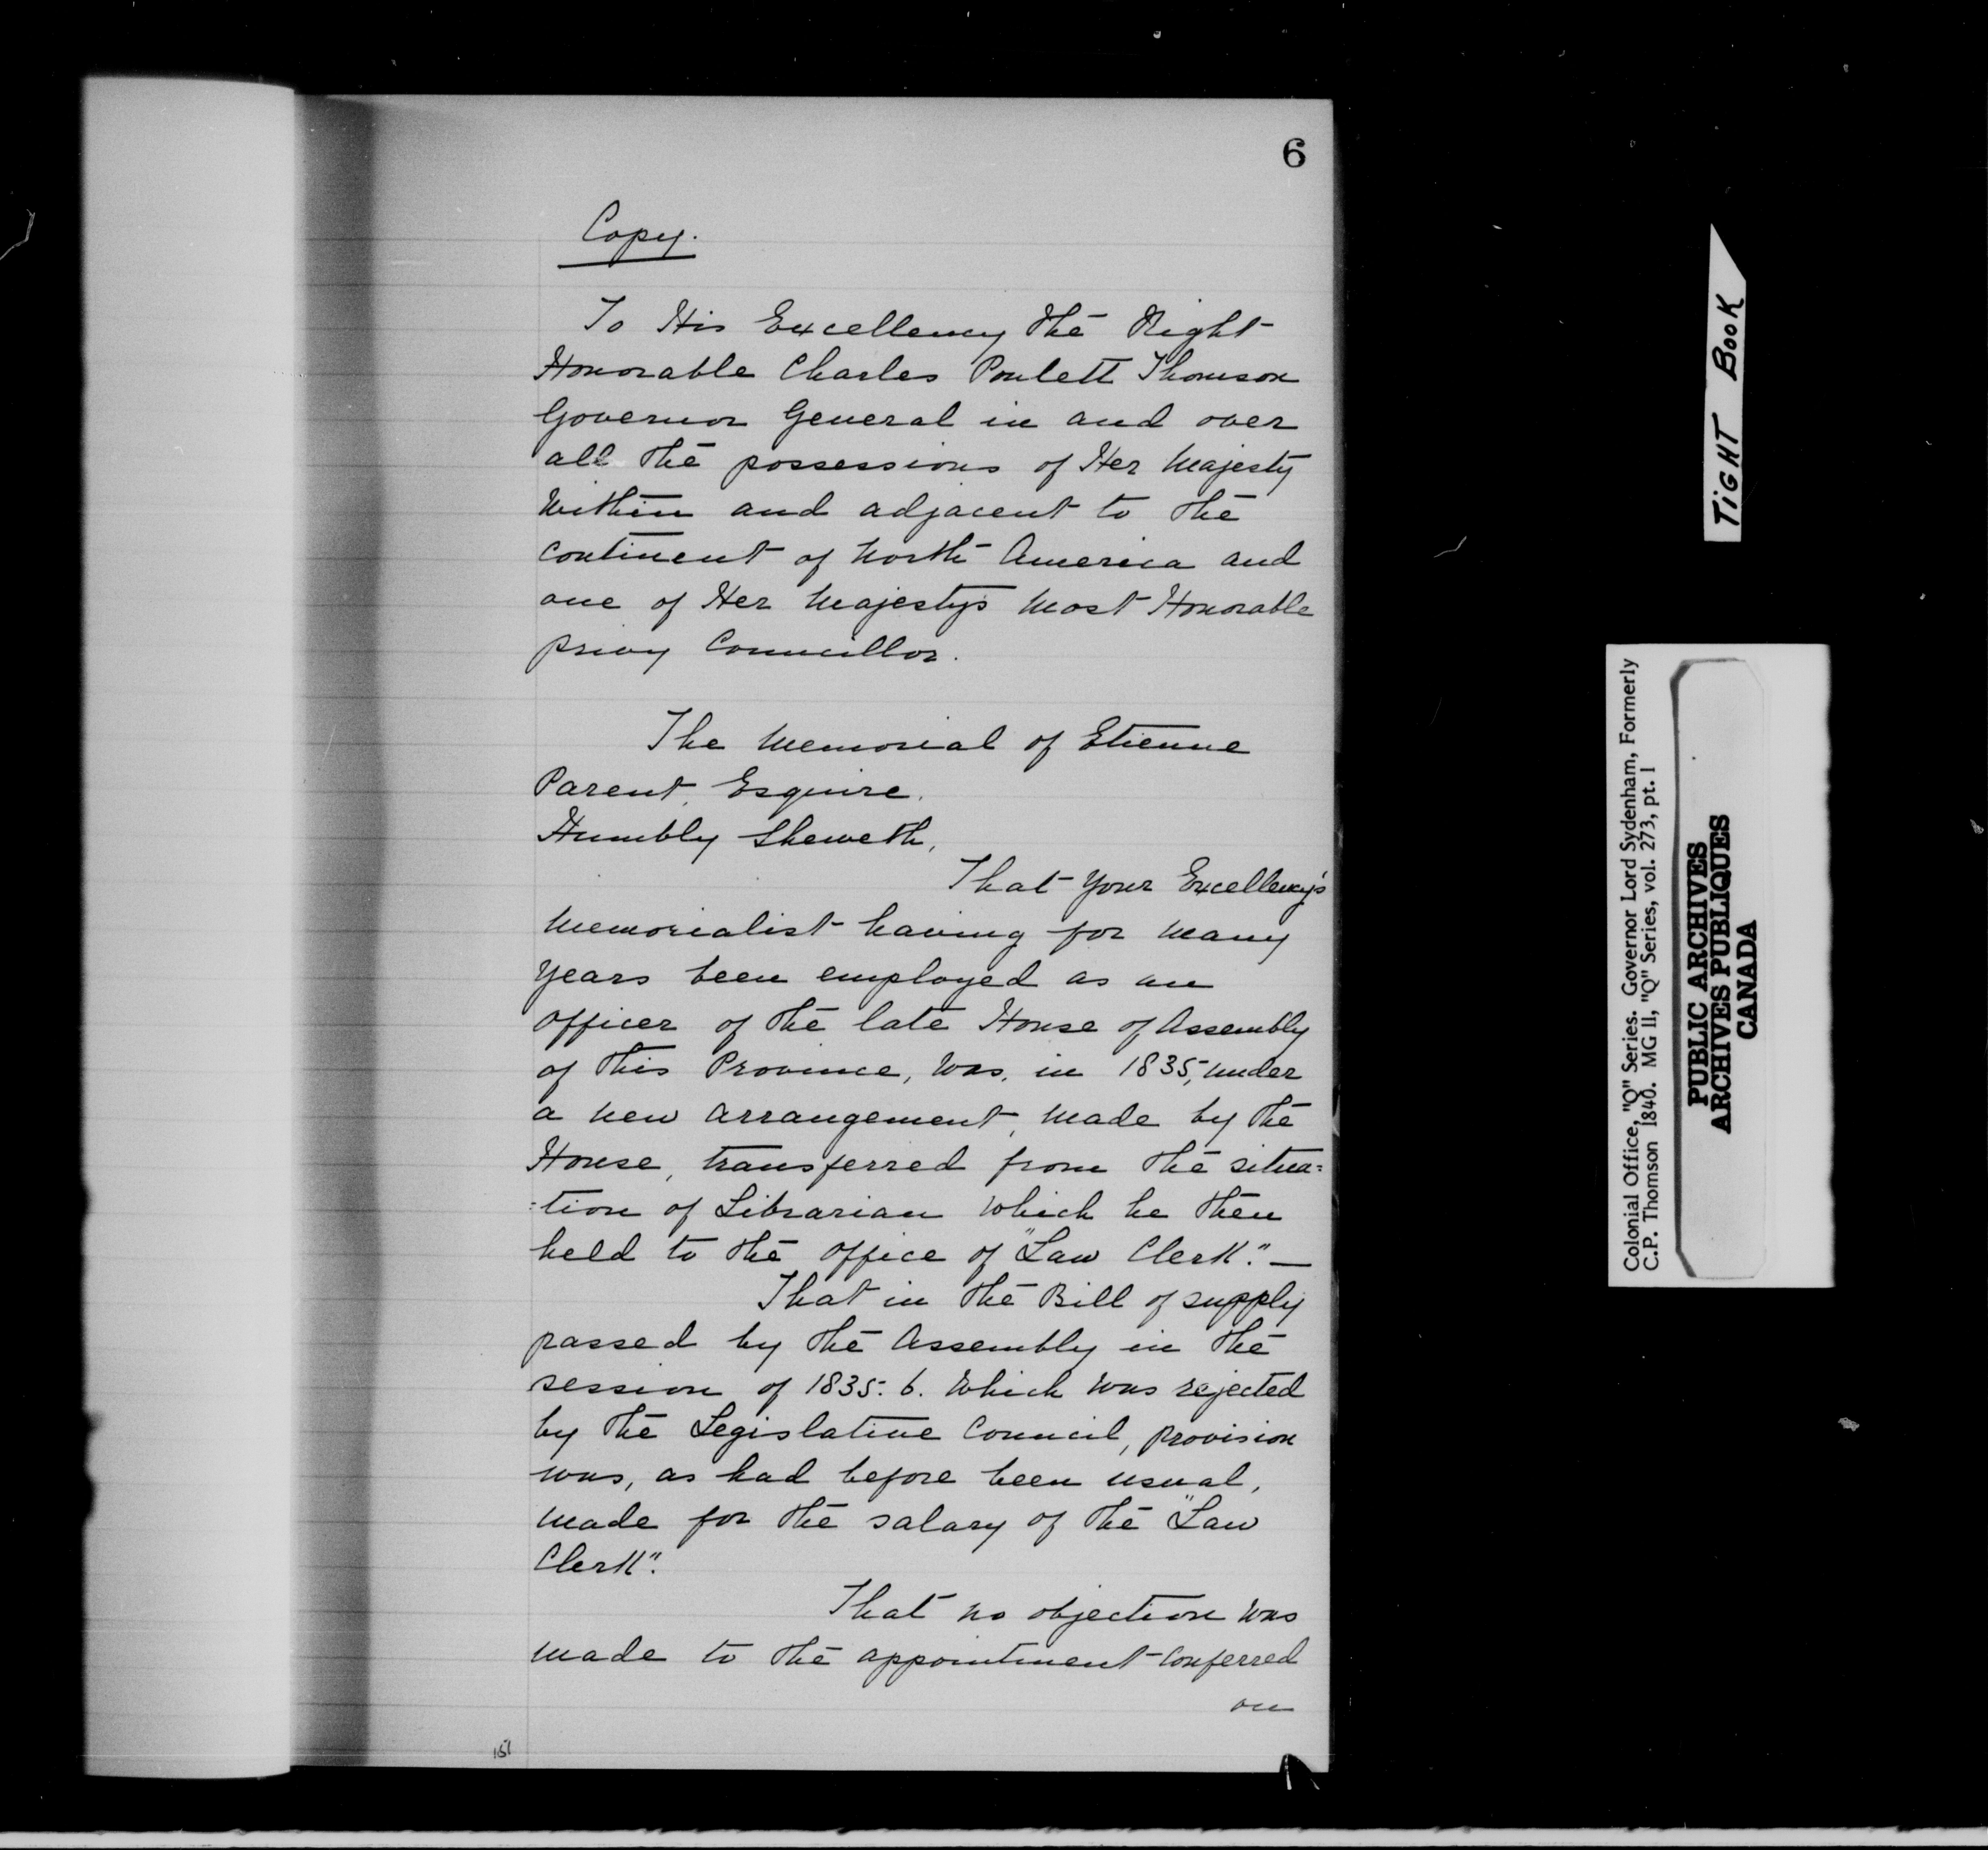 6
Copy.
To His Excellency the Right
Honorable Charles Poulett Thomson
Governor General in and over
all the possessions of Her Majesty
within and adjacent to the
continent of North America and
one of Her Majestys Most Honorable
privy Councillor.
The Memorial of Etienne
Parent, Esquire.
Humbly Sheweth,
That your Excellency's
Memorialist having for many
years been employed as an
officer of the late House of Assembly
of this Province, was, in 1835, under
a new arrangement, made by the
House, transferred from the situa=
=tion of Librarian which he then
held to the office of "Law Clerk". —
That in the Bill of supply
passed by the Assembly in the
session of 1835. 6. which was rejected
by the Legislative Council, provision
was, as had before been usual,
made for the salary of the "Law
Clerk".
That no objection was
made to the appointment conferred
on
151
TIGHT BOOK
Colonial Office, "Q" Series. Governor Lord Sydenham, Formerly
C.P. Thomson 1840. MG 11, "Q" Series, vol. 273, pt. 1
PUBLIC ARCHIVES
ARCHIVES PUBLIQUES
CANADA